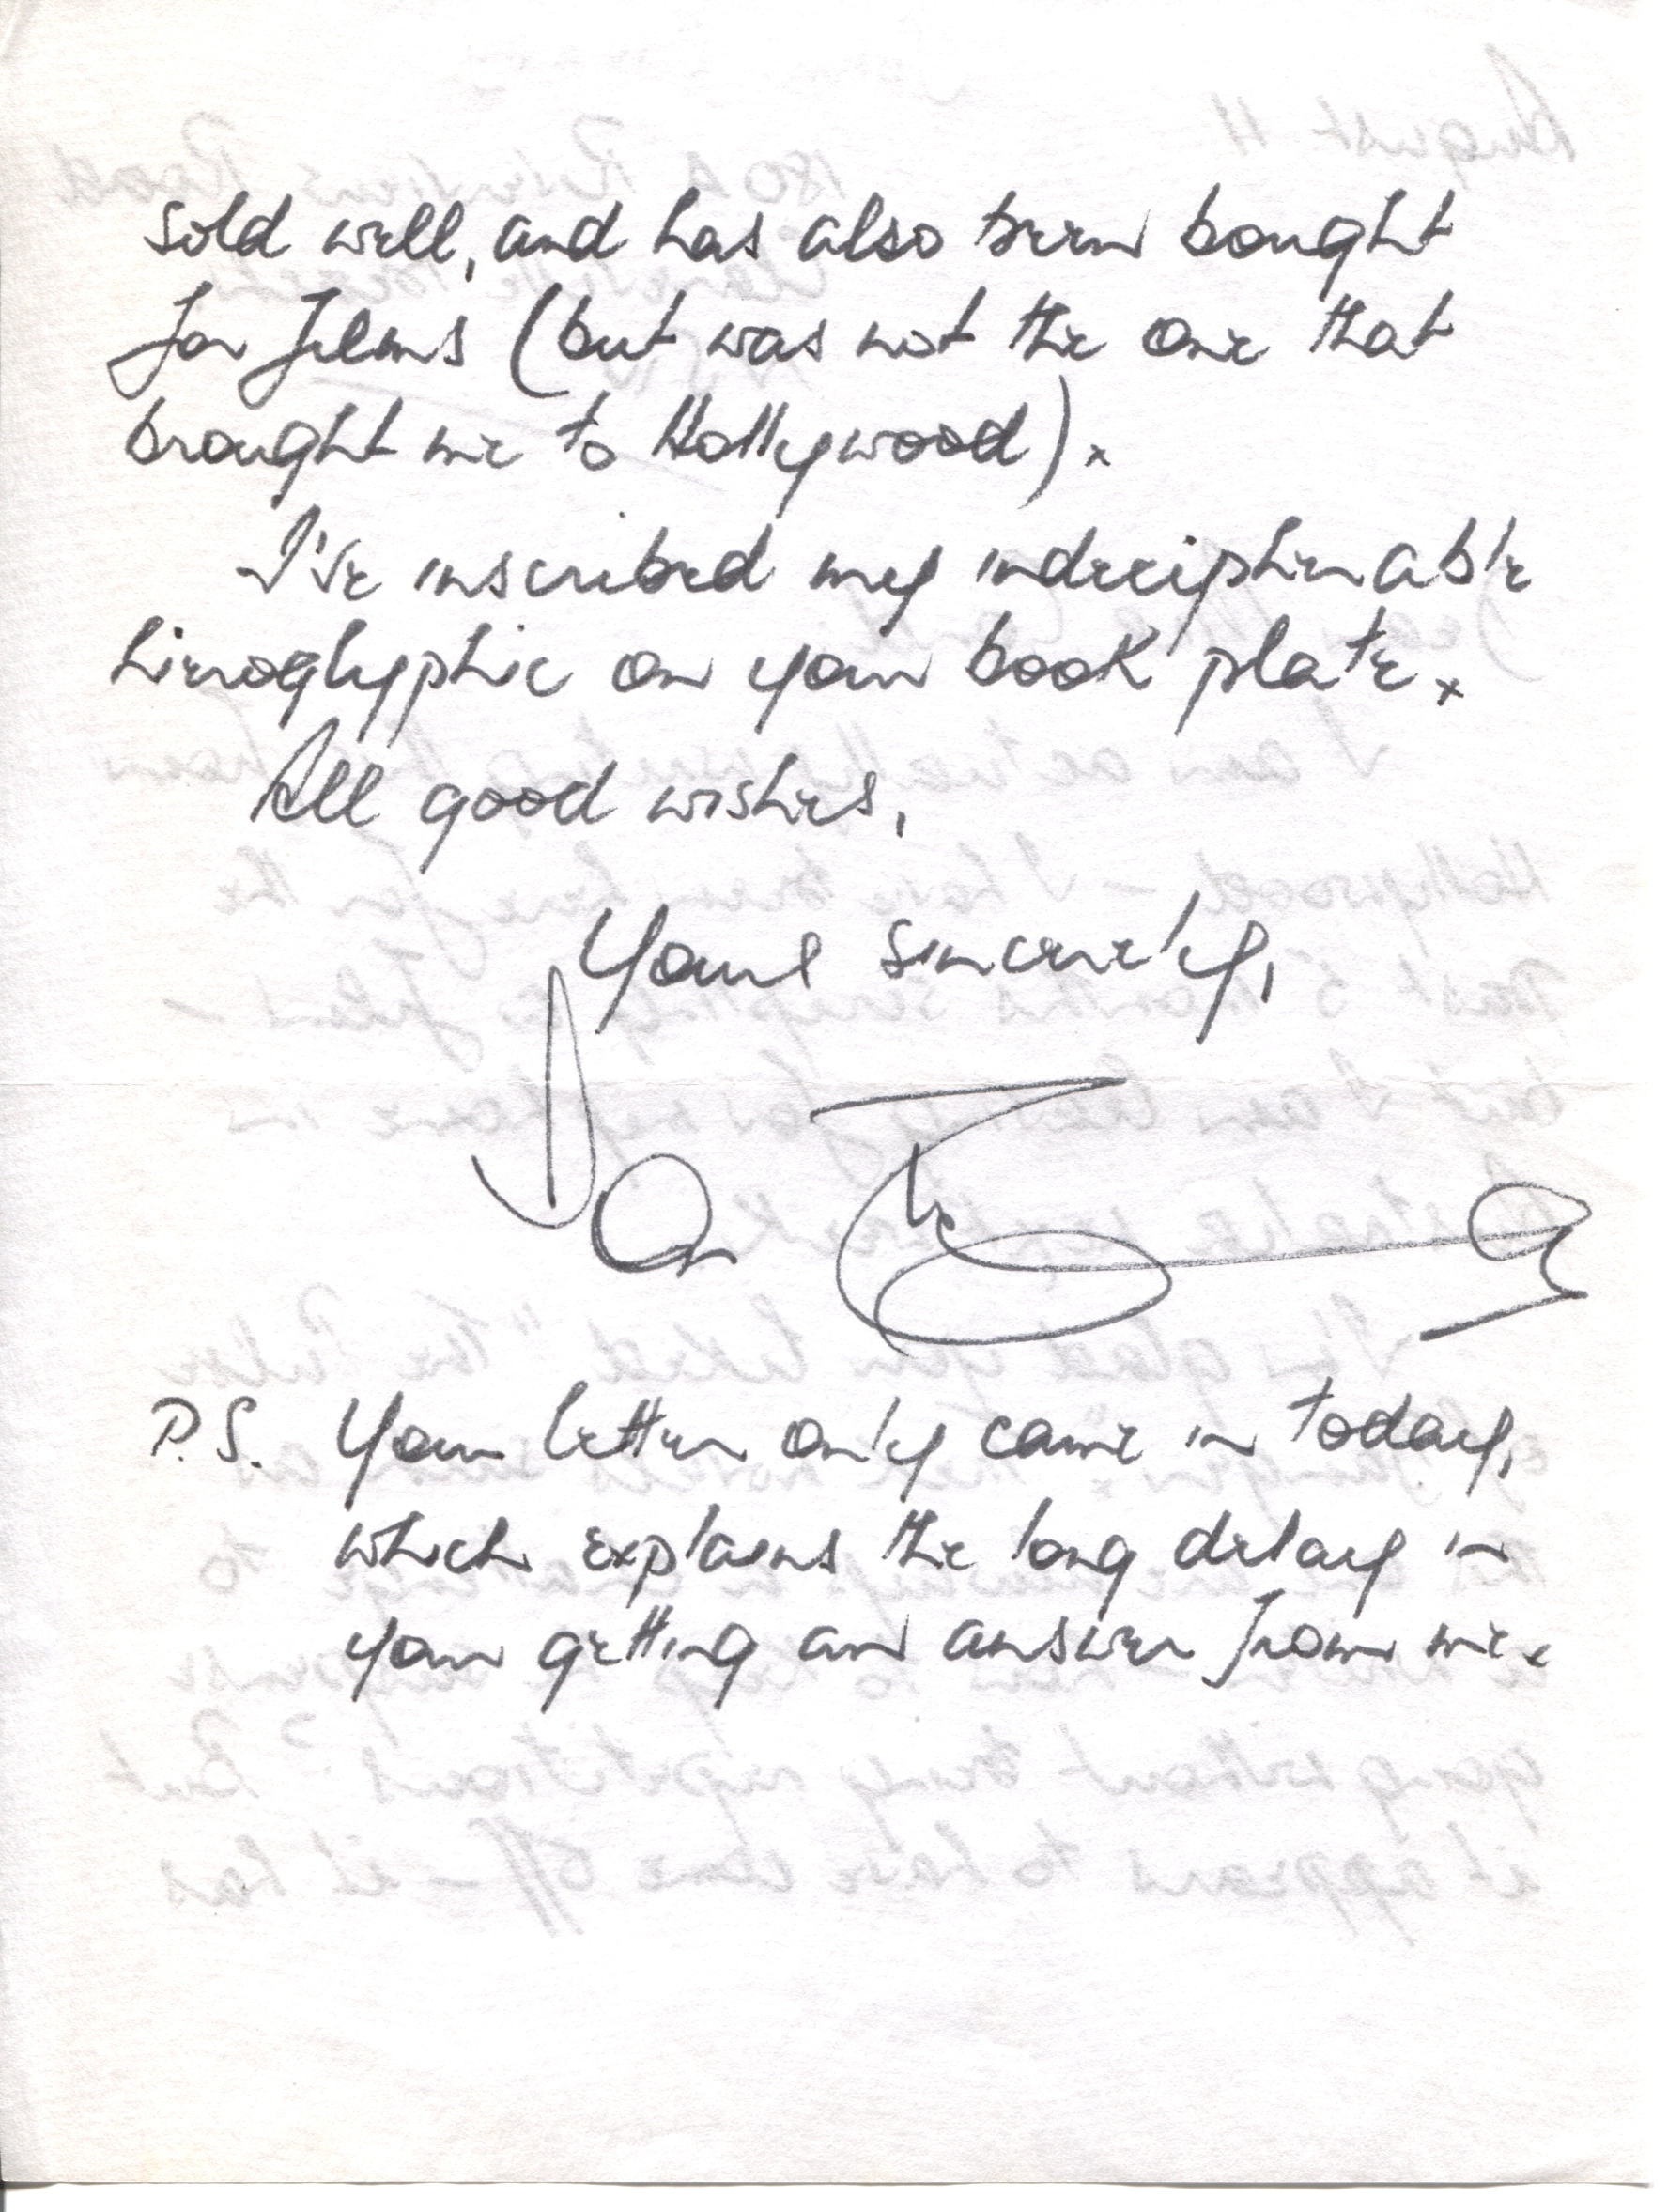 sold well, and has also been bought
for films (but was not the one that
brought me to Hollywood).
I've inscribed my indecipherable
hieroglyphic on your book plate.
All good wishes,
Yours sincerely,
Jon
P.S. Your letter only came in today,
which explains the long delay in
your getting an answer from me.